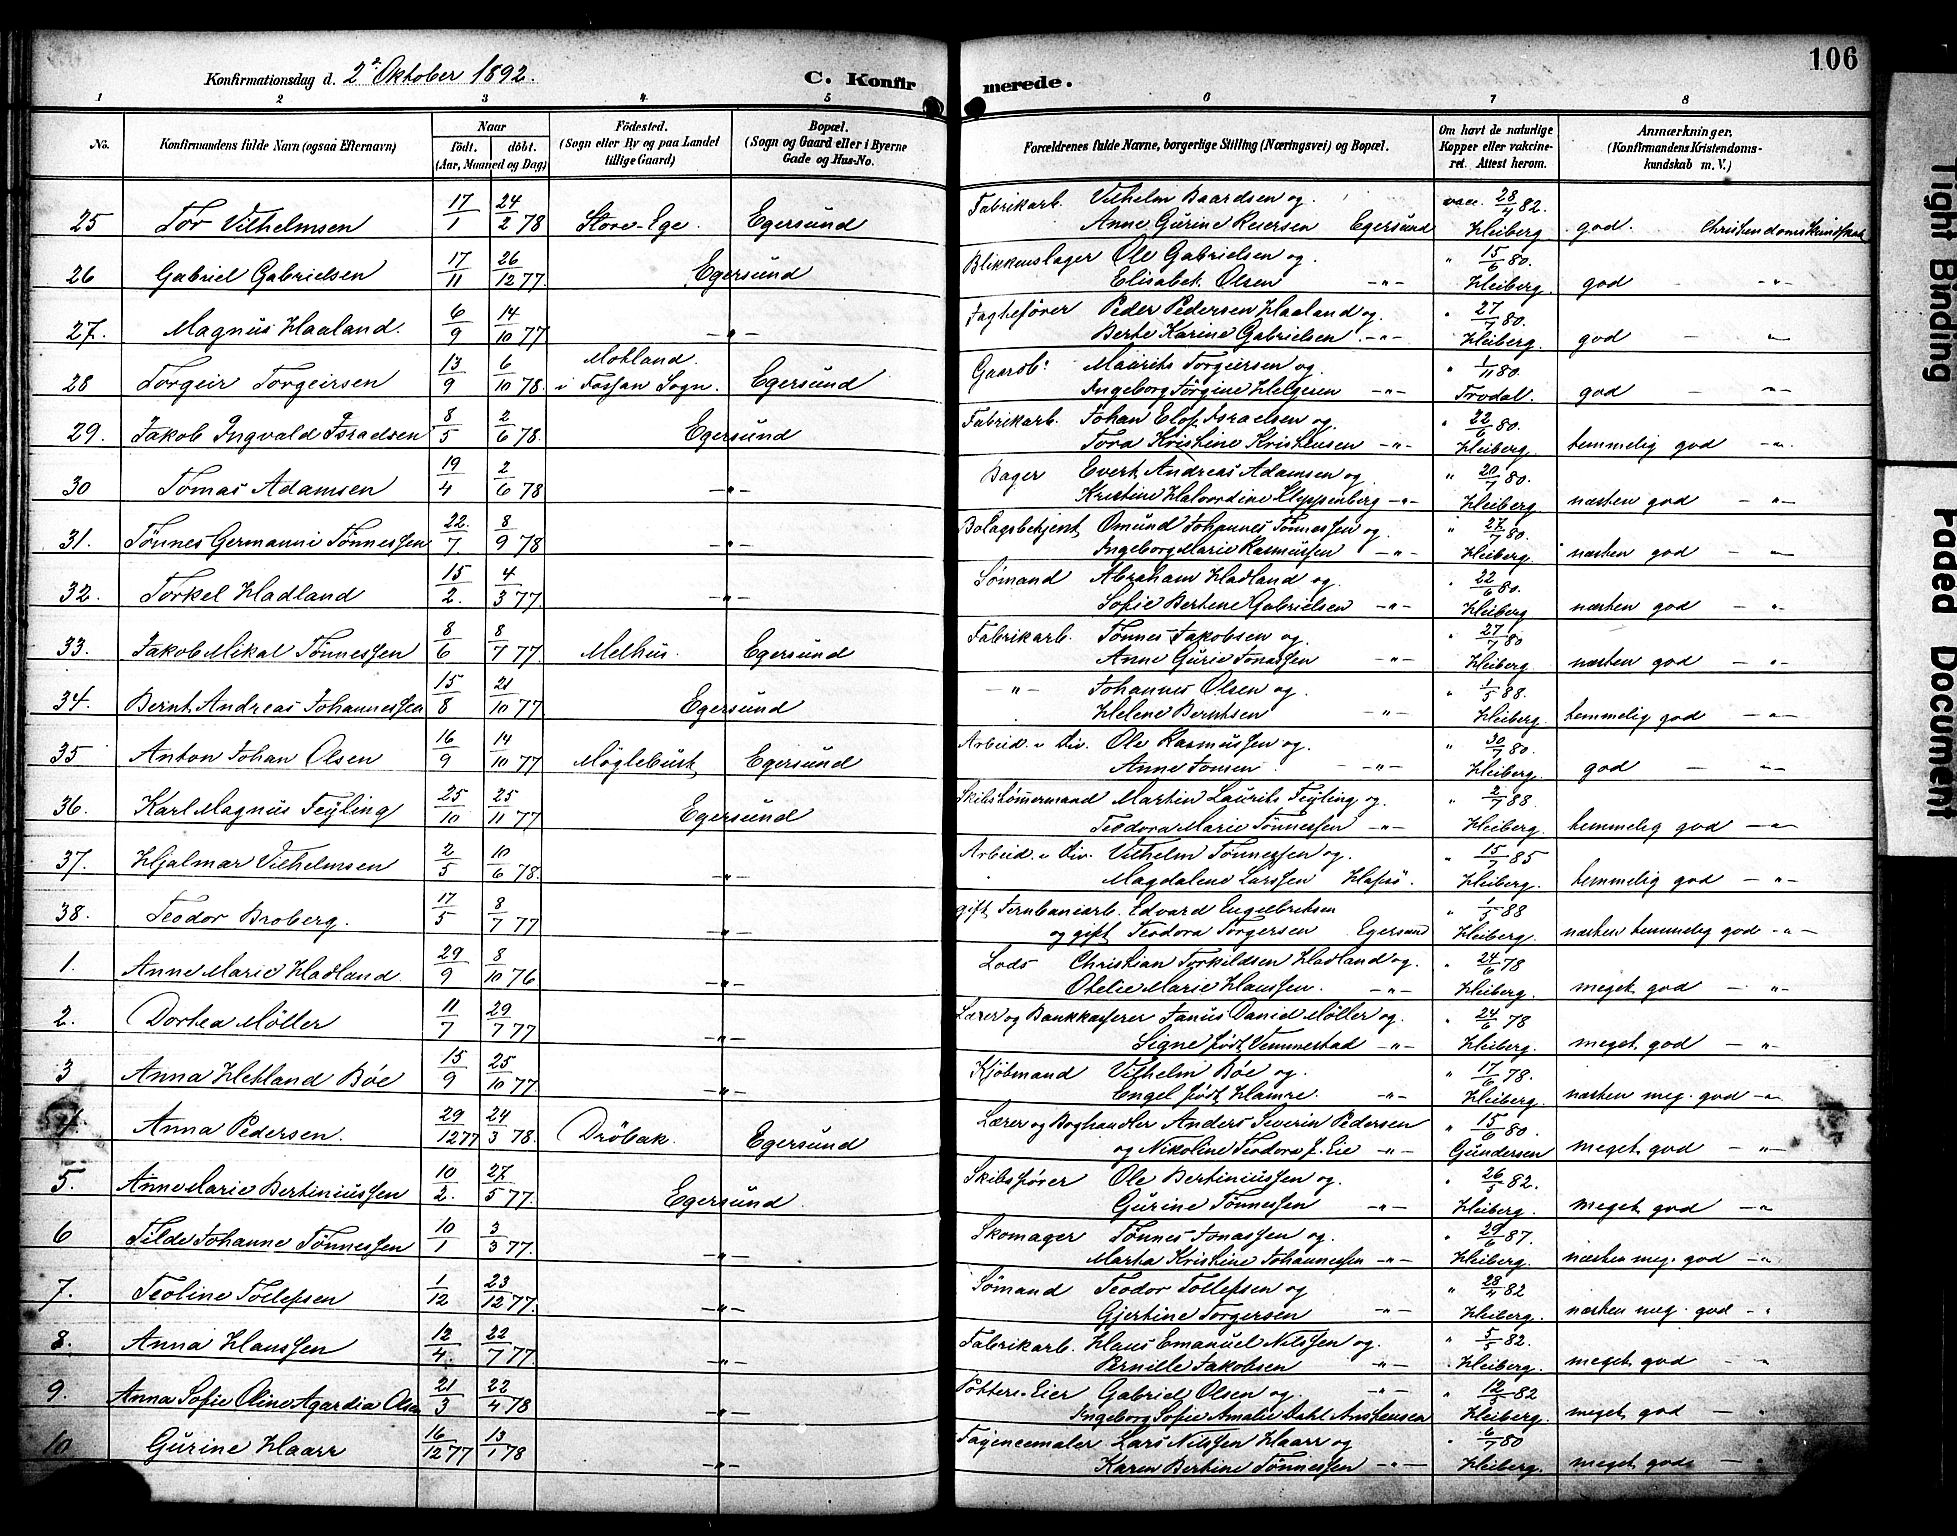 106
Konfirmationsdag d. 2den Oktober 1892. C. Konfirmerede.
1 2 3 4 5 6 7 8
No. Konfirmandens fulde Navn (ogsaa Efternavn) Naar födt. döbt. (Aar, Maaned og Dag) Födested. (Sogn eller By og paa Landet tillige Gaard) Bopæl. (Sogn og Gaard eller i Byerne Gade og Hus-No. Forældrenes fulde Navne, borgerlige Stilling (Næringsvei) og Bopæl. Om havt de naturlige Kopper eller vakcineret. Attest herom. Anmærkninger. (Konfirmandens Kristendomskundskab m. V.)
25 Tor Vilhelmsen 17/1 24/2 78 Store-Ege Egersund Fabrikarb. Vilhelm Baardsen og
Anne Gurine Reiersen Egersund vacc. 28/4 82. Heiberg god. Christendomskundskab
26 Gabriel Gabrielsen 17/11 26/12 77. Egersund Blikkenslager Ole Gabrielsen og
Elisabet Olsen -"- " 15/6 80. Heiberg. god -"-
27. Magnus Haaland. 6/9 14/10 77 -"- Peder Pedersen Haaland og
Berte Karine Gabrielsen. -"- " 27/7 80. Heiberg. god -"-
28 Torgeir Torgeirsen 13/9 6/10 78. Motland i Fossan Sogn. Egersund Gaardb. Maurits Torgeirsen og
Ingeborg Torgine Helgesen -"- " 1/11 80. Trodal. god -"-
29. Jakob Ingvald Israelsen 8/5 2/6 78. Egersund Fabrikarb. Johan Elof Israelsen og
Tora Kristine Kristensen -"- " 22/6 80. Heiberg temmelig god -"-
30 Tomas Adamsen 19/4 2/6 78 -"- Bager Evert Andreas Adamsen og
Kristine Halvordine Kleppenberg -"- " 20/7 80. Heiberg næsten god -"-
31. Tönnes Germanni Tönnessen 22/7 8/9 78 -"- Bolagsbetjent Omund Johannes Tönnessen og
Ingeborg Marie Rasmussen -"- " 27/7 80. Heiberg næsten god -"-
32. Torkel Hadland 15/2. 4/3 77. -"- Sømand Abraham Hadland og
Sofie Bertene Gabrielsen -"- " 22/6 80. Heiberg næsten god -"-
33. Jakob Mikal Tönnessen 8/6 8/7 77. Melhus. Egersund Fabrikarb. Tönnes Jakobsen og
Anne Gurie Jonassen -"- " 27/7 80 Heiberg. næsten god -"-
34. Bernt Andreas Johannessen 15/8 21/10 77 Egersund -"- Johannes Olsen og
Helene Berntsen -"- " 1/5 88. Heiberg. temmelig god -"-
35 Anton Johan Olsen 16/9 14/10 77 Møglebust Egersund Arbeid. v Div. Ole Rasmussen og
Anne Jonsen -"- " 30/7 80. Heiberg. god -"-
36. Karl Magnus Feyling 25/10 25/11 77 Egersund Skibstømmermand Martin Laurits Feyling og
Teodora Marie Tönnessen -"- " 2/7 88. Heiberg. temmelig god -"-
37. Hjalmar Vilhelmsen 2/5 10/6 78. -"- Arbeid. v Div. Vilhelm Tönnessen og
Magdalene Larssen Hafsø. " 15/7 85 Heiberg. temmelig god -"-
38. Teodor Broberg. 17/5 8/7 77 -"- gift Jernbanearb. Edvard Engelbretsen
og gift Teodora Torgersen Egersund " 1/5 88 Heiberg. næsten temmelig god -"-
1. Anne Marie Hadland. 29/9 8/10 76 -"- Lods Christian Torkildsen Hadland og
Otelie Marie Hanssen. -"- " 24/6 78 Heiberg. meget god -"-
2. Dortea Möller 11/7 29/7 77 -"- Lærer og Bankkasserer Janus Daniel Möller og
Signe født Vemmestad -"- " 24/6 78 Heiberg. meget god -"-
3 Anna Hetland Böe 15/9 25/10 77. -"- Kjöbmand Vilhelm Böe og
Engel født Hamre. -"- " 17/6 78. Heiberg. næsten meg. god -"-
4. Anna Pedersen. 29/12 77 24/3 78. Dröbak. Egersund Lærer og Boghandler Anders Severin Pedersen
og Nikoline Teodora f. Eie -"- " 15/6 80. Gundersen meget god -"-
5. Anne Marie Bertiniussen 10/2. 27/5 77. Egersund Skibsfører Ole Bertiniussen og
Gurine Tönnessen -"- " 26/5 82. Heiberg. meget god -"-
6 Tilde Johanne Tönnessen 10/1 3/3 77. -"- Skomager Tönnes Jonassen og
Marta Kristine Johannessen -"- " 29/6 87. Heiberg. næsten meg. god -"-
7. Teoline Tollefsen 1/12 23/12 77. -"- Sømand Teodor Tollefsen og
Gjertine Torgersen -"- " 28/4 82 Heiberg. næsten meg. god -"-
8. Anna Hanssen 12/4. 22/7 77. -"- Fabrikarb. Hans Emanuel Nilssen og
Pernille Jakobsen -"- " 5/5 82. Heiberg. meget god -"-
9. Anna Sofie Oline Agardia Olsen 21/3 22/4 78 -"- Potteri-Eier Gabriel Olsen og -"-
Ingeborg Sofie Amalie Dahl Anstensen " 12/5 82 Heiberg. meget god -"-
10 Gurine Haarr 16/12 77 13/1 78 -"- Fayencemaler Lars Nilssen Haarr og
Karen Bertine Tönnessen -"- " 6/7 80 Heiberg. meget god -"-
Tight Binding
Faded Document